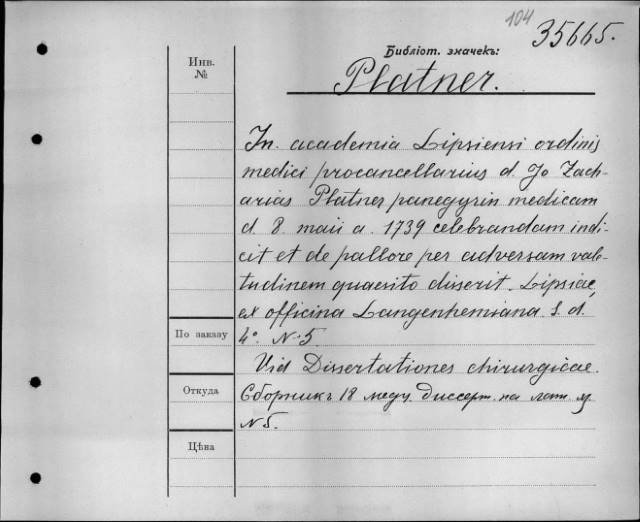 104
35665.
Библіот. значекъ:
Platner.
Инв.
№
In academia Lipsiensi ordinis
medici procancellarius d. Jo Zach-
arias Platner panegyrin medicam
d. 8. maii a. 1739 celebrandam indi-
cit et de pallore per adversam vale-
tudinem quaesito disserit. Lipsiae,
ex officina Langenhemiana s. d.
4°. N: 5.
Vid Dissertationes chirurgicae.
Сборникъ 18 меду. диссерт. на лат. яз
N 5.
По заказу
Откуда
Цѣна